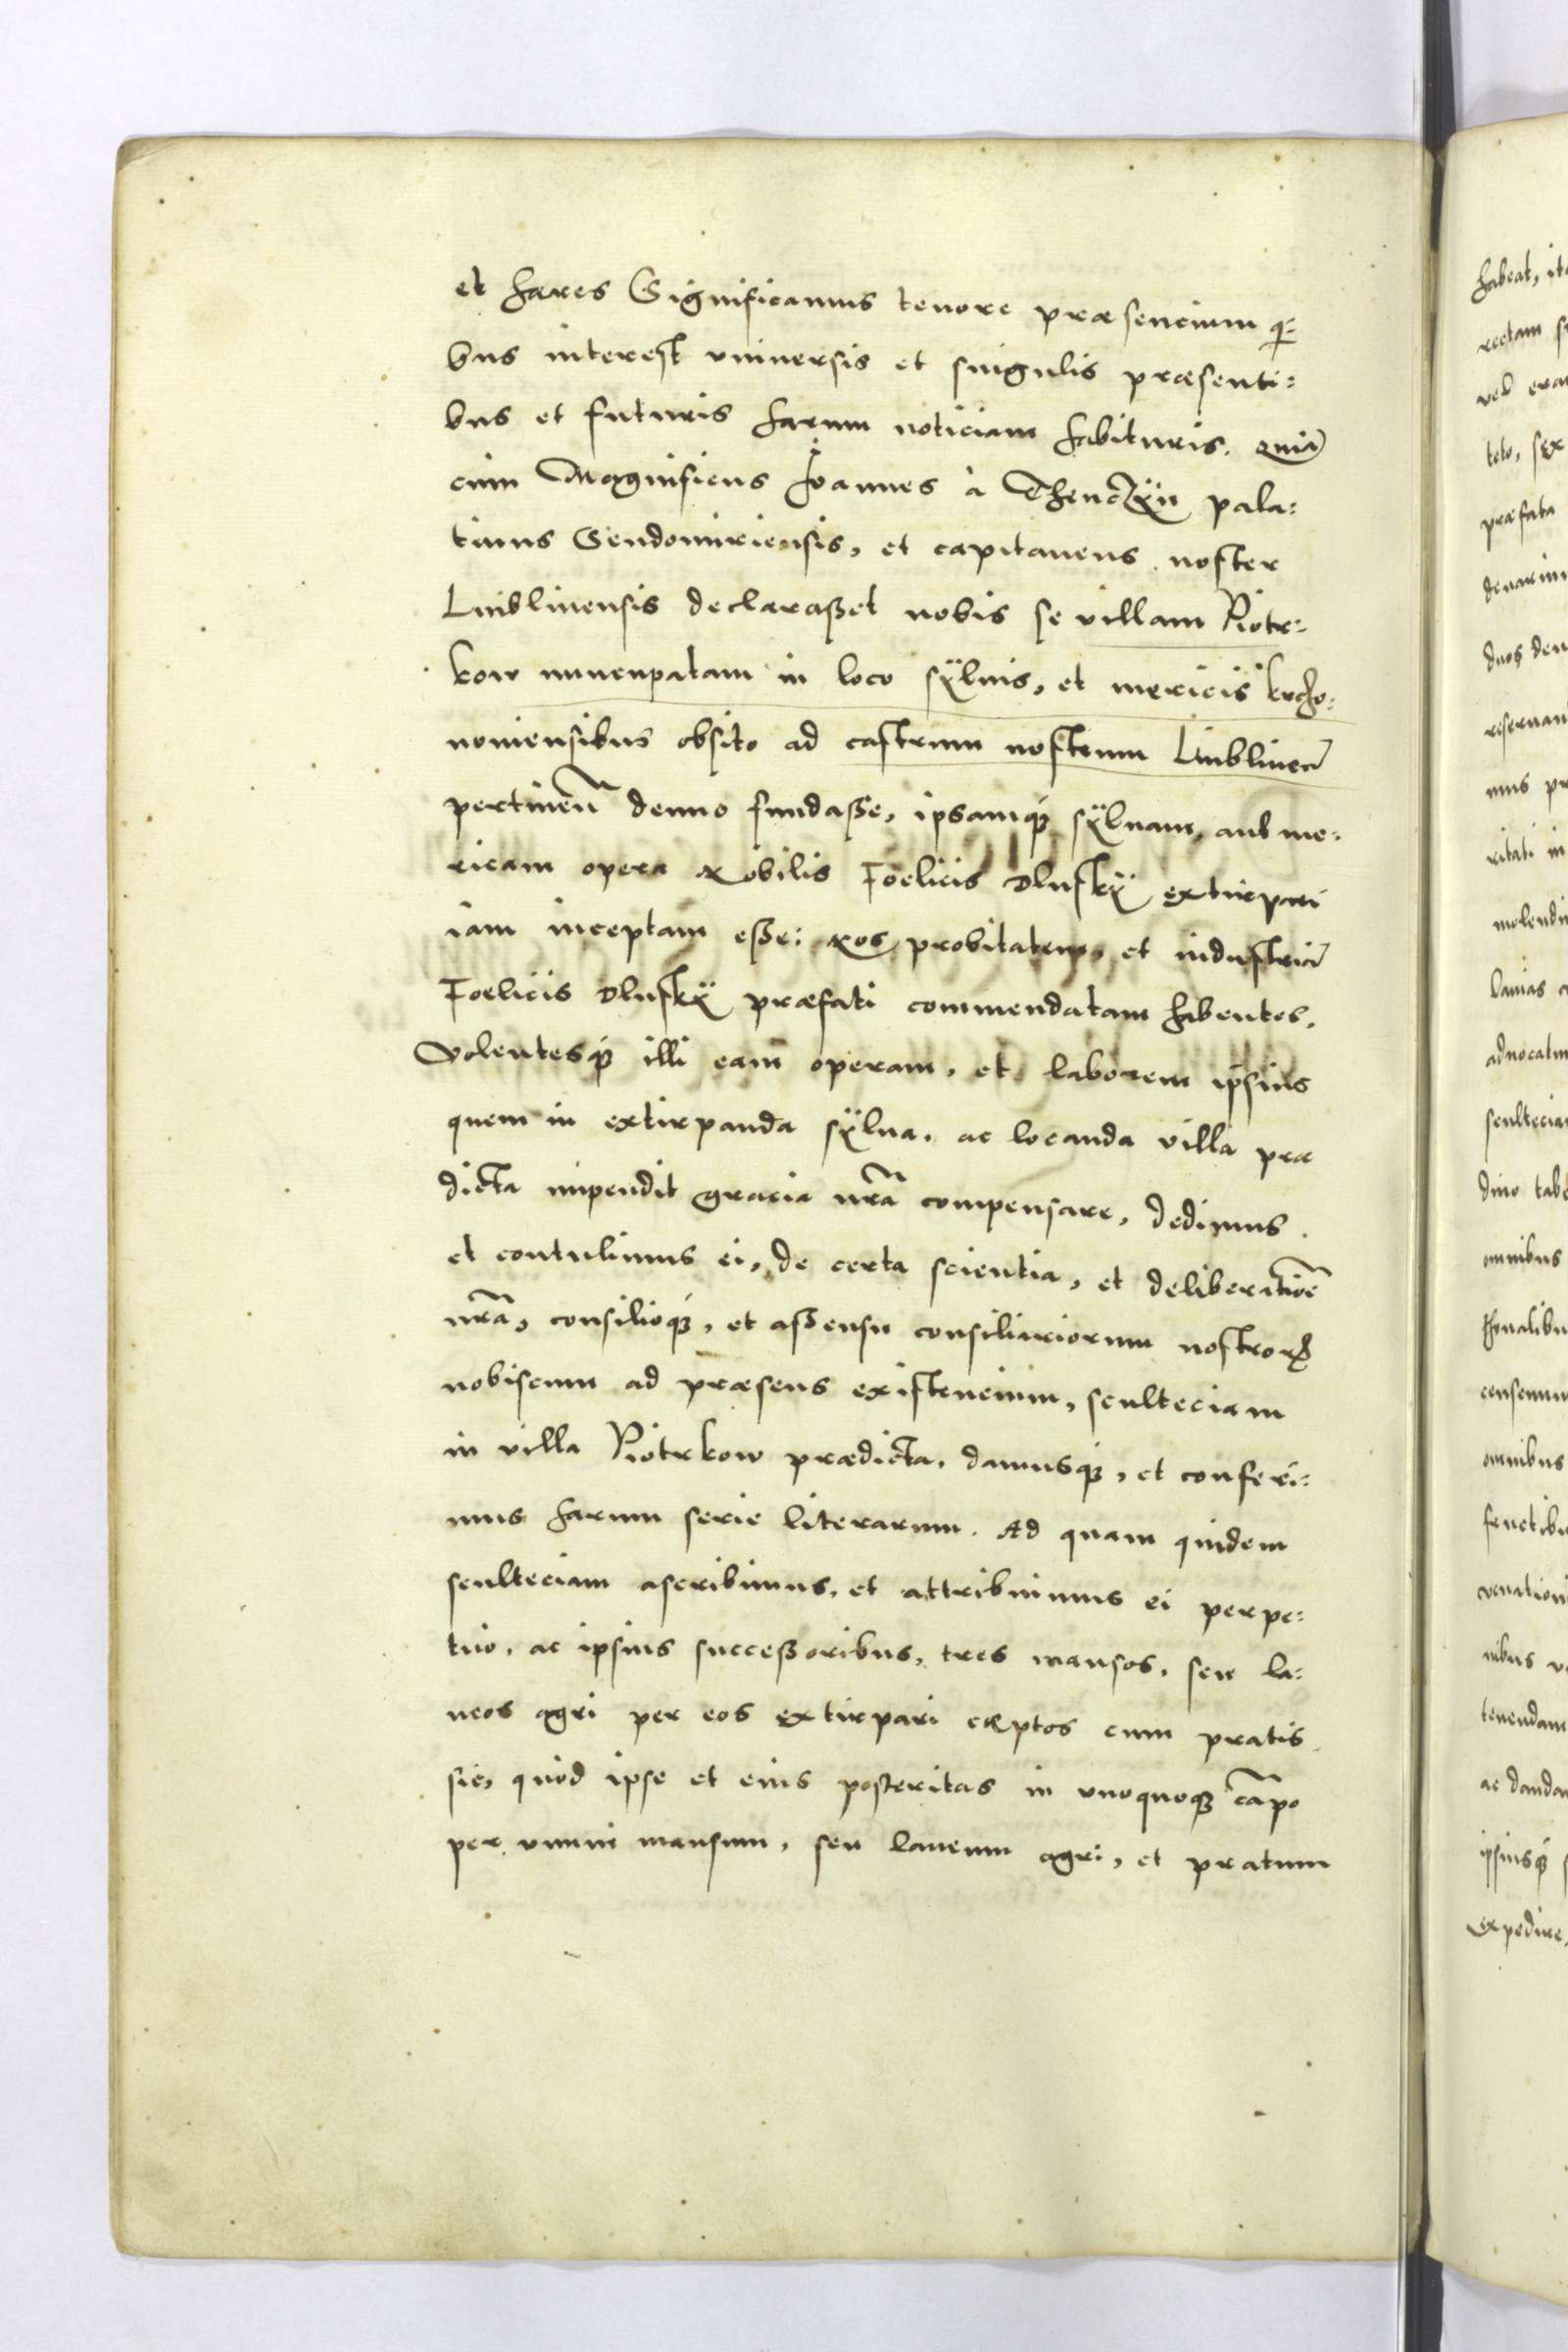 et hæres Significamus tenore præsencium qi=
bus interest vniuersis et singulis præsenti=
bus et futuris harum noticiam habituris. Quiā
cum Magnificus Ioannes à Thenczÿn pala=
tinus Sendomiriensis, et capitaneus noster
Lublinensis declarasset nobis se villam Piotr=
kow nuncupatam in loco sÿluis, et mericis krcho=
nomensibus obsito ad castrum nostrum Lublinen̄
pertinen̄ denuo fundasse, ipsamq3 sÿluam, aut me=
ricam opera Nobilis Foelicis Dluskÿ extirpari
iam inceptam esse: Nos probitatem, et industriā
Foelicis Dluskÿ præfati commendatam habentes,
Volentesq3 illi eam operam, et laborem ipsius
quem in extirpanda sÿlua, ac locanda villa præ
dicta impendit gracia nr̄a compensare, dedimus
et contulimus ei, de certa scientia, et deliberatiōe
nr̄a, consilioq3, et assensu consiliariorum nostror̄
nobiscum ad præsens existencium, sculteciam
in villa Piotrkow prædicta, damusq3, et conferi=
mus harum serie literarum. Ad quam quidem
sculteciam ascribimus, et attribuimus ei perpe=
tuo, ac ipsius successoribus, tres mansos, seu la=
neos agri per eos extirpari cæptos cum pratis
sic, quod ipse et eius posteritas in vnoquoq3 cāpo
per vnum mansum, seu laneum agri, et pratum
habeat, it
rectam
vel
telo, sex
præfata
denarium
duos den
reseruan
mus pr
ritati in
molendi
lanias
aduocatu
scultecia
dino tab
omnibus
censemu
omnibus
fructibu
nibus
tenendam
ac dandam
ipsiusq3
expedire,